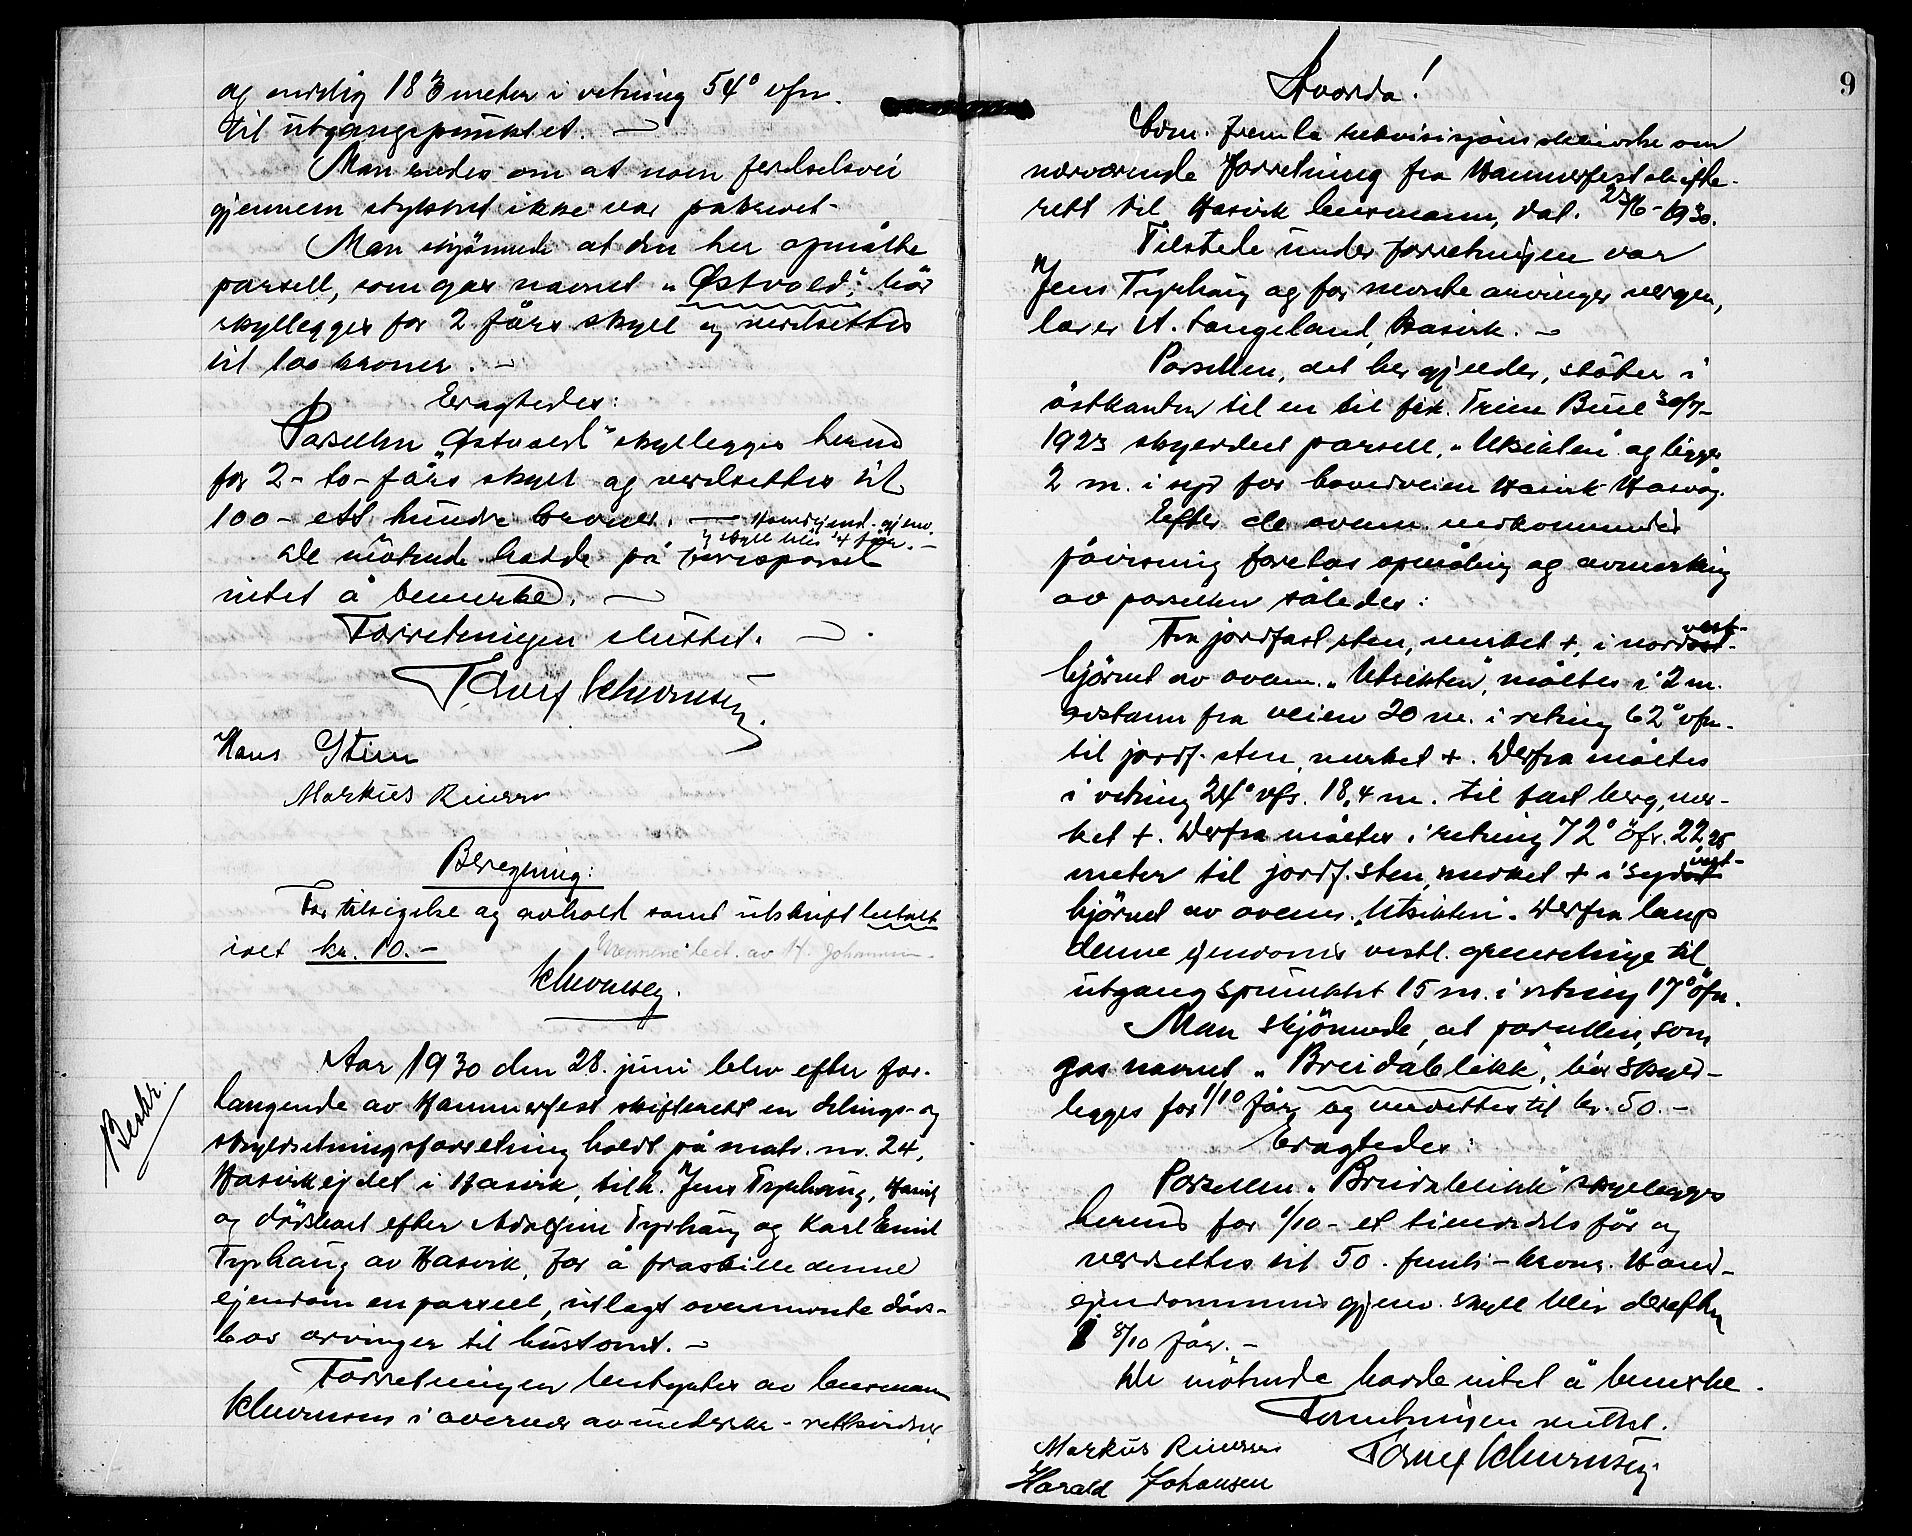 og endelig 183 meter i retning 54° vfn.
til utgangspunktet. —
Man enedes om at noen ferdselsvei
gjennem stykket ikke var påkrevet.
Man skjønnede at den her opmålte
parsell, som gaves navnet "Østvold", bør
skyllegges for 2 øre skyll og verdsettes
til 100 kroner. —
Eragtedes:
Parsellen "Østvold" skyllegges herved
for 2 - to - øre skyll og verdsettes til
100 - ett hundre kroner. — Hovedejend. gjenv.
skyll blir
De møtende hadde på
intet å bemerke. —
Forretningen sluttet. —
Hans Stien
Markus
Beregning:
For tilsigelse og avhold samt utskrift betalt
ialt kr. 10.—
Mennene bet. av H. Johannsen.
Beskr.
Aar 1930 den 28. juni blev efter for-
langende av Hammerfest skifterett en delings- og
skyldsetningsforretning holdt på matr. nr. 24,
Hasvikejdet i Hasvik, tilh. Jens Tyrhaug, Hasvik
og dødsboet efter Tyrhaug og Karl Emil
Tyrhaug av Hasvik, for å fraskille denne
ejendom en parsell, utlagt ovennevnte døds-
bos arvinger til hustomt. —
Forretningen bestyrtes av lensmann
i overvær av undersk. rettsvidner
9
Hvorda!
Lrm. fremla rekvisisjonsskrivelse om
nærværende forretning fra Hammerfest skifte-
rett til Hasvik lensmann, dat. 23/6-1930.
Tilstede under forretningen var
Jens Tyrhaug og for nevnte arvinger vergen,
lærer A. Langeland, Hasvik. —
Parsellen, det her gjelder, støter i
østkanten til en til frk. Trine Buel 30/7-
1923 skylddelt parsell, "Utsikten" og ligger
2 m. i syd for hovedveien Hasvik-Hasvåg.
Efter de ovenn. vedkommendes
påvisning foretas opmåling og avmerking
av parsellen således:
Fra jordfast sten, merket +, i nordvest-
hjørnet av ovenn. "Utsikten", måltes i 2 m.
avstann fra veien 20 m. i retning 62° vfn.
til jordf. sten, merket +. Derfra måltes
i retning 24° vfs. 18,4 m. til fast berg, mer-
ket +. Derfra måltes i retning 72° øfs. 22,25
meter til jordf. sten, merket + i sydvest-
hjørnet av ovenn. "Utsikten". Derfra langs
denne ejendoms vestl. grenselinje til
utgangspunktet 15 m. i retning 17° øfn.
Man skjønnede, at parsellen, som
gas navnet "Breidablikk", bør skyld-
legges for 1/10 øre og verdsettes til kr. 50.—
Eragtedes:
Parsellen "Breidablikk" skyllegges
herved for 1/10 - et tiendedels øre og
verdsettes til 50 - femti - kroner. Hoved-
ejendommens gjenv. skyll blir derefter
8/10 øre. —
De møtende hadde intet å bemerke.
Forretningen sluttet.
Markus
Harald Johansen